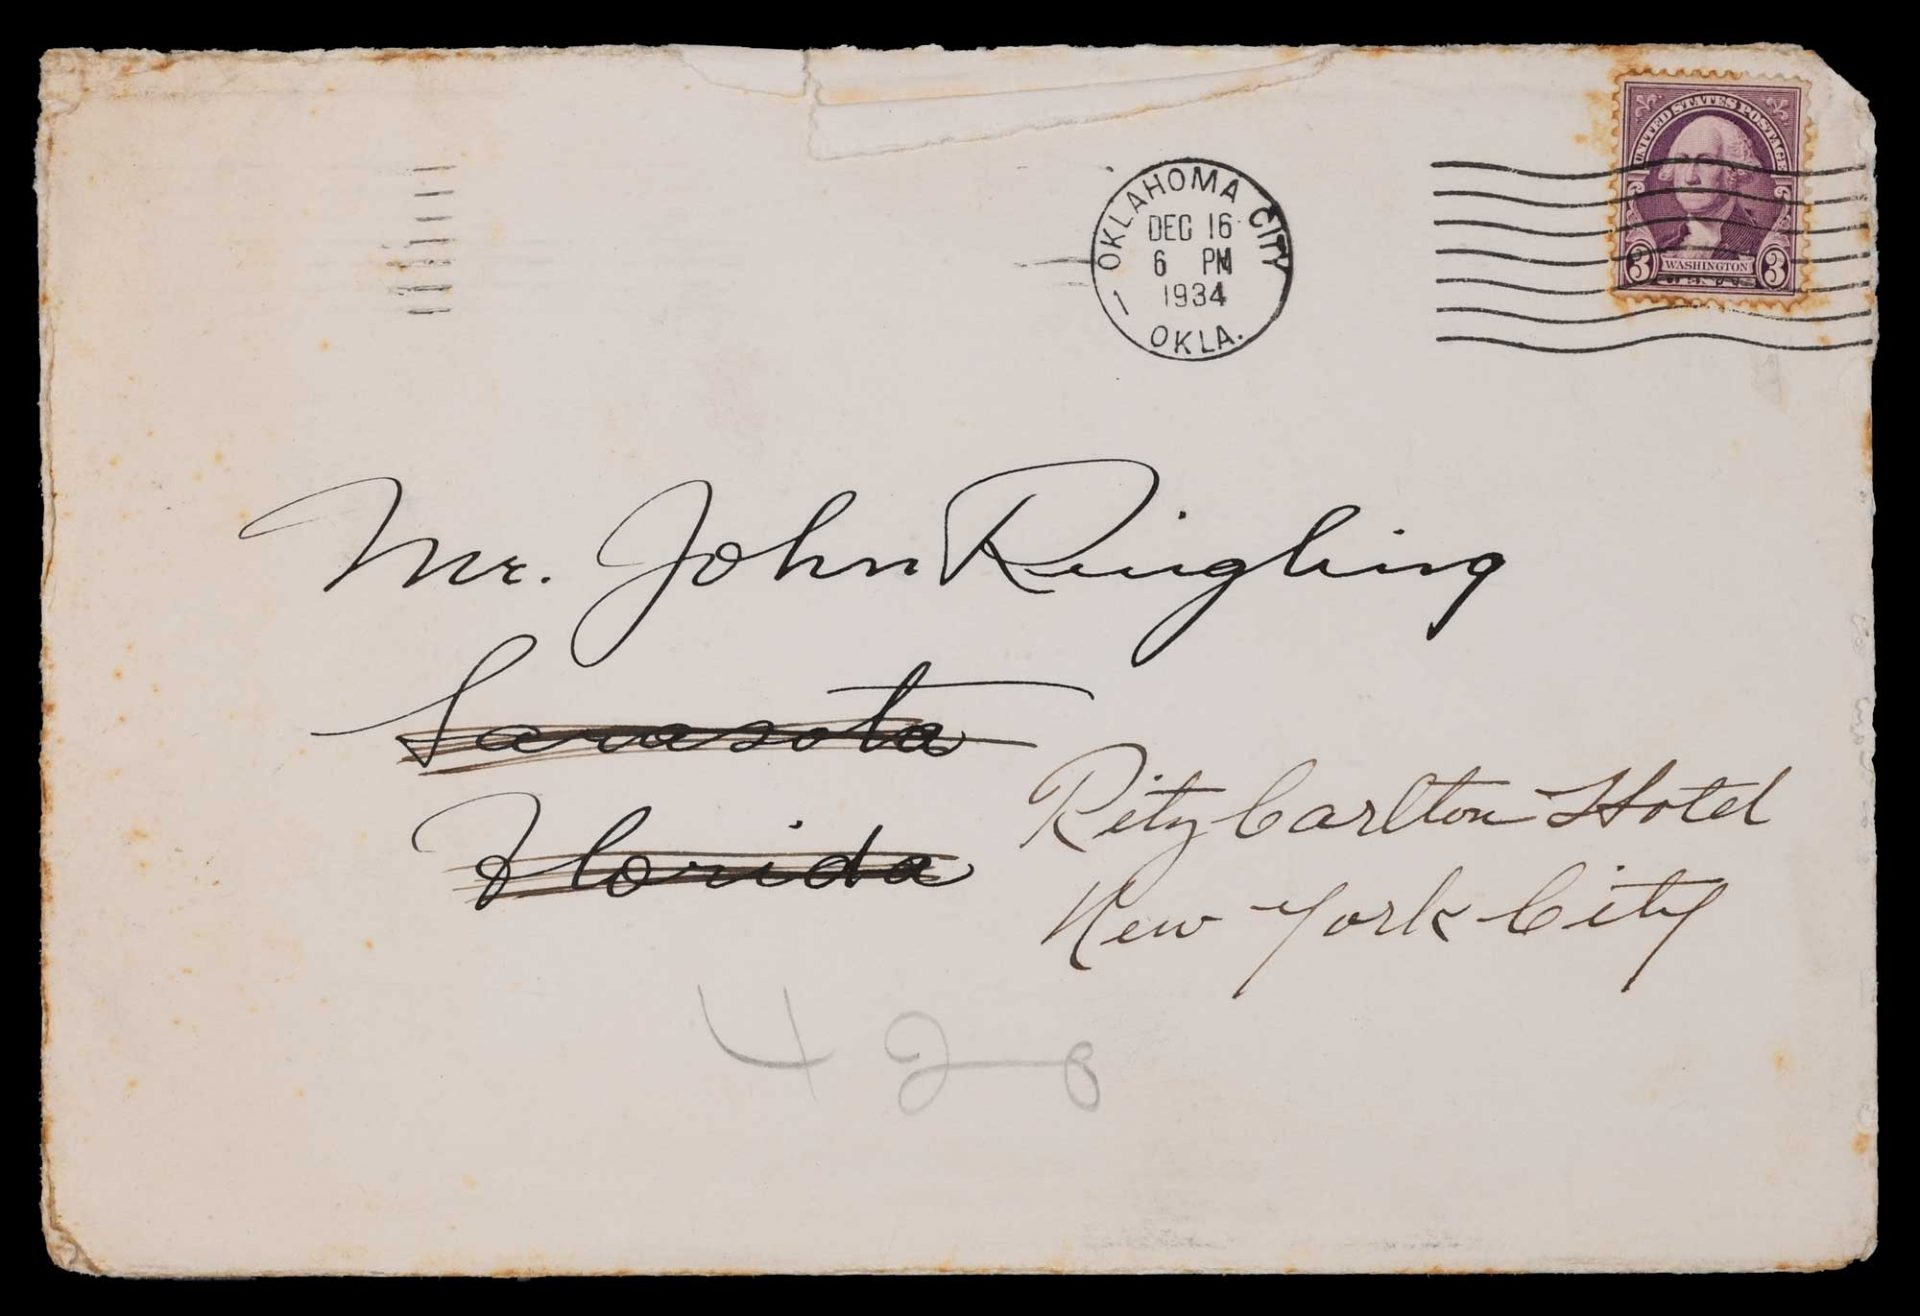 UNITED STATES POSTAGE
3 WASHINGTON 3
OKLAHOMA CITY
DEC 16
6 PM
1934
1
OKLA.
Mr. John Ringling
Sarasota
Florida
Ritz Carlton Hotel
New York City
4